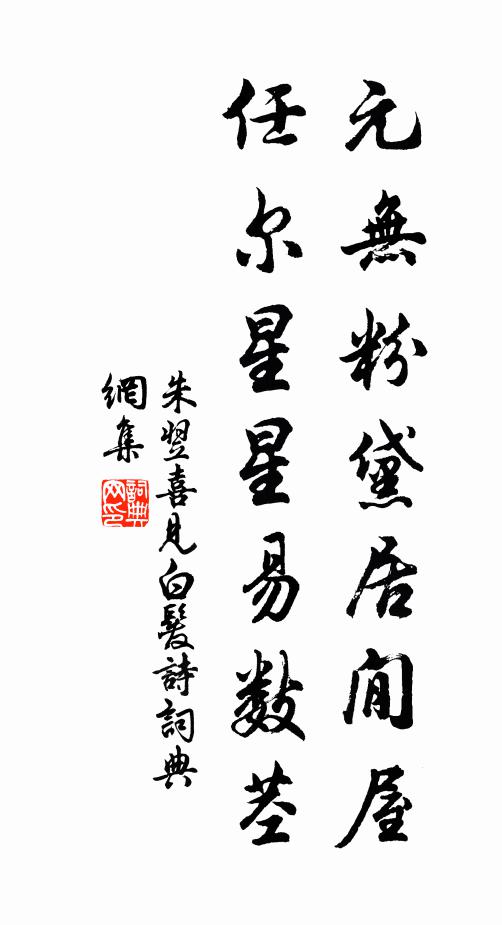 元無粉黛居閒屋
任尔星星易數莖
朱翌喜見白髮詩詞典
網集
詞典網印